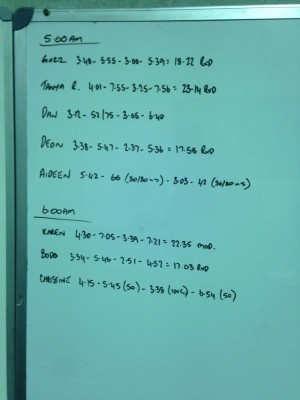 5:00AM
GOZZ 3.40 - 5.55 - 3.00 - 5.39 = 18.22 RXD
TANYA R. 4.01 - 7.55 - 3.25 - 7.56 = 23.14 RXD
DAN 3.12 - 52/75 - 3.05 - 6.40
DEON 3.38 - 5.47 - 2.37 - 5.36 = 17.58 RXD
AIDEEN 5.42 - 66 (30/30-7) - 3.03 - 42 (30/30-5)
6:00AM
KAREN 4.30 - 7.05 - 3.39 - 7.21 = 22.35 MOD.
3.34 - 5.46 - 2.51 - 4.52 = 17.03 RXD
CHRISTINE 4.15 - 5.45 (50) - 3.38 - 6.54 (50)